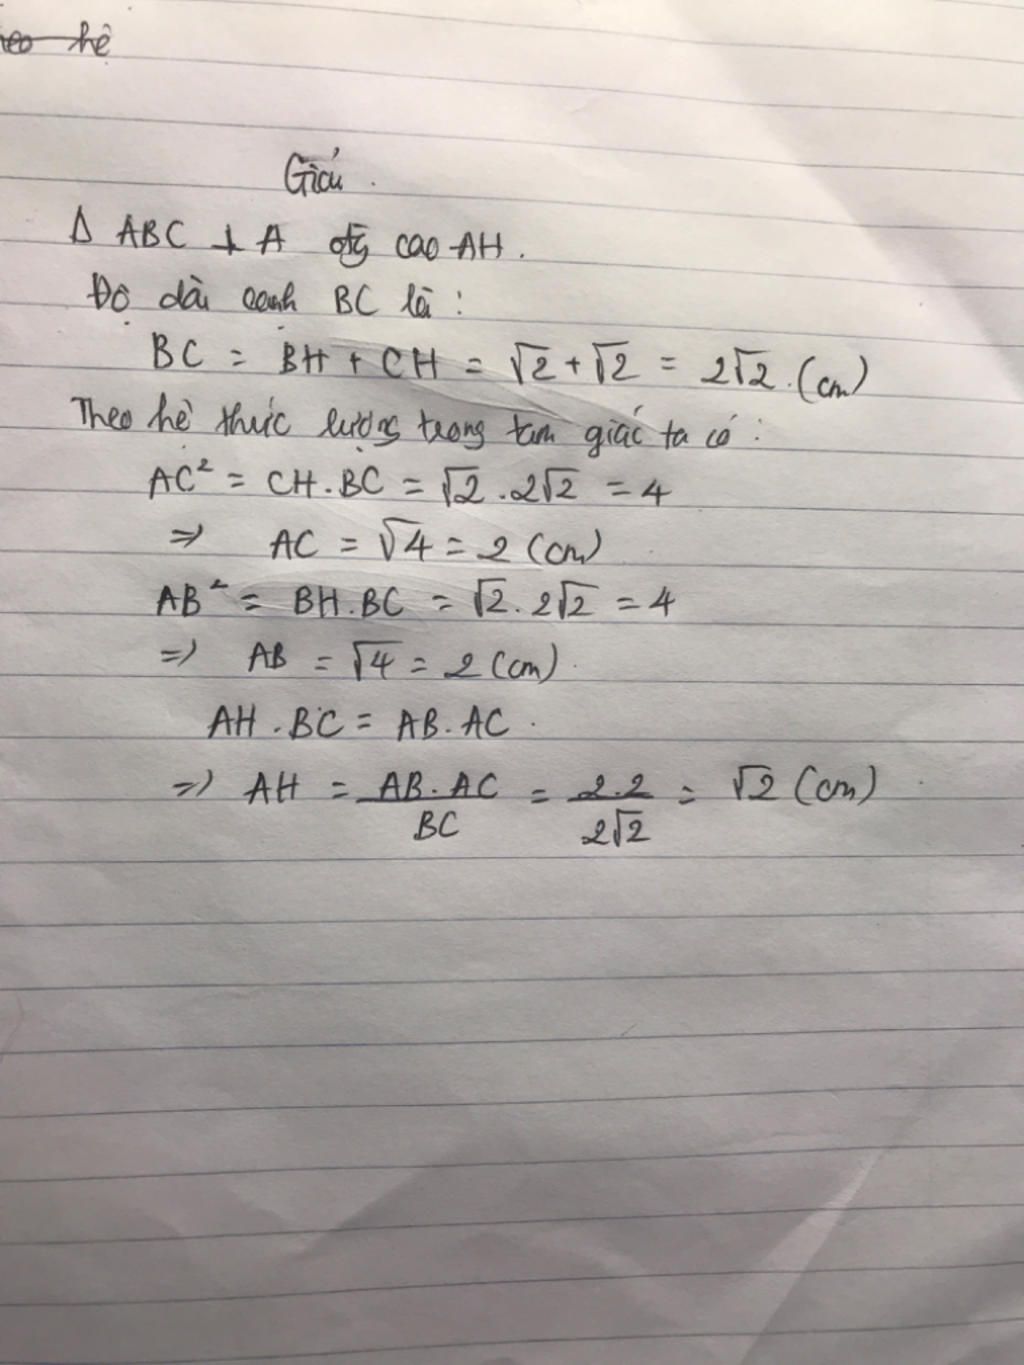 heo hệ
Giải.
Δ ABC ⊥ A đg cao AH.
Độ dài cạnh BC là :
BC = BH + CH = √2 + √2 = 2√2. (cm)
Theo hệ thức lượng trong tam giác ta có :
AC² = CH.BC = √2 . 2√2 = 4
=> AC = √4 = 2 (cm)
AB² = BH.BC = √2. 2√2 = 4
=> AB = √4 = 2 (cm).
AH . BC = AB. AC.
=> AH = AB. AC / BC = 2.2 / 2√2 = √2 (cm)